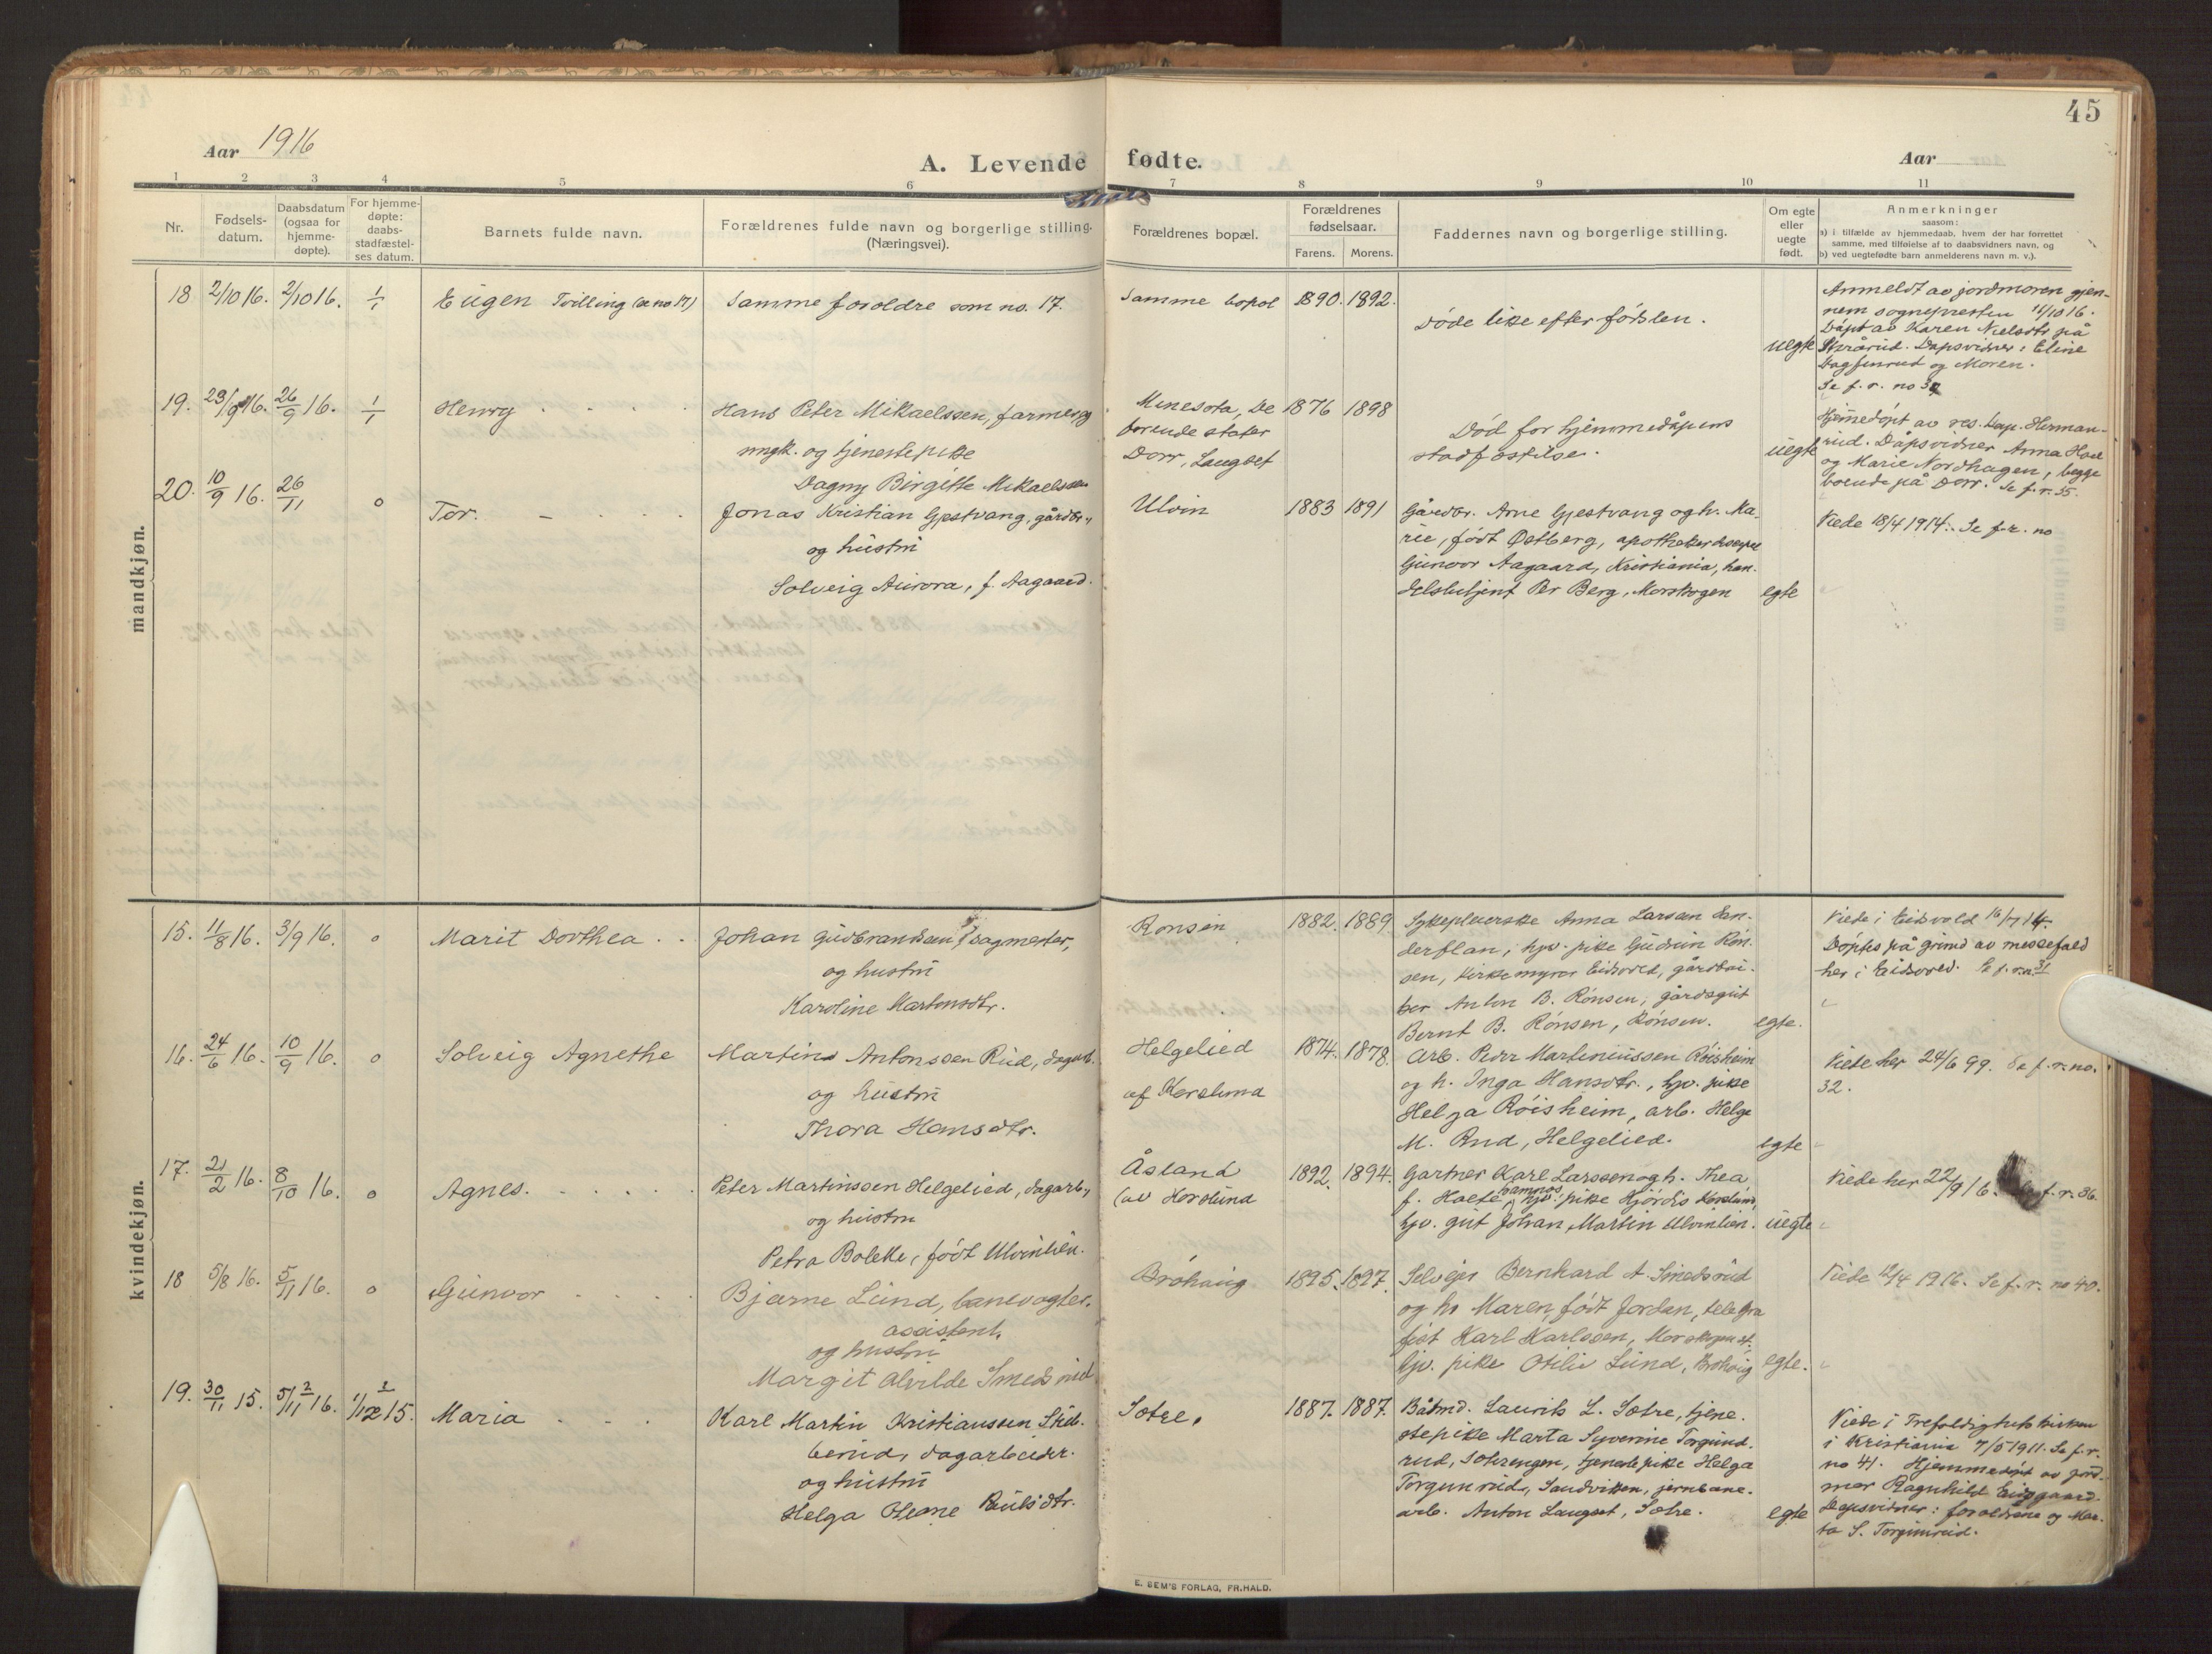 45
Aar 1916
A. Levende fødte.
Aar
1 2 3 4 5 6 7 8 9 10 11
Nr.
Fødsels-
datum.
Daabsdatum
(ogsaa for
hjemme-
døpte).
For hjemme-
døpte:
daabs-
stadfæstel-
ses datum.
Barnets fulde navn.
Forældrenes fulde navn og borgerlige stilling.
(Næringsvei).
Forældrenes bopæl.
Forældrenes
fødselsaar.
Farens. Morens.
Faddernes navn og borgerlige stilling.
Om egte
eller
uegte
født.
Anmerkninger
saasom:
a) i tilfælde av hjemmedaab, hvem der har forrettet
samme, med tilføielse af to daabsvidners navn, og
b) ved uegtefødte barn anmelderens navn m. v.).
mandkjøn.
18 2/10 16. 2/10 16. 1/1
Eugen Tvilling (se no 17)
Samme foroldre som no. 17.
Samme bopol
1890. 1892.
Døde like efter fødslen.
uegte
Anmeldt av jordmoren gjen-
nem sognepresten 11/10 16.
Døpt av Karen Nielsdtr på
Skrårud. Dåpsvidner: Eline
og Moren.
Se f. r. no
19. 23/9 16. 26/9 16. 1/1
Henry
Hans Peter Mikaelssen, farmer,
ungk. og tjenestepike
Dagny Birgitte Mikaelssen
Minesota, De
forende stater
Dorr, Langset
1876 1898
Død før hjemmedåpens
stadfostelse.
uegte
Hjemmedøpt av res. kap. Herman-
rud. Dåpsvidner Anna Hoel
og Marie Nordhagen, begge
boende på Dorr. Se f. r. 35.
20. 10/9 16. 26/11 o
Tor.
Jonas Kristian Gjestvang, gårdbr.,
og hustru
Solveig Aurora, f. Aagaard.
Ulvin
1883 1891
Gårdbr. Arne Gjestvang og h. Ma-
rie, født Østberg, apotheker
Gunvor Aagaard, Kristiania, han-
delsbetjent Per Berg, Morskogen
egte
Viede 18/4 1914. Se f. r. no
kvindekjøn.
15. 11/8 16. 3/9 16. o
Marit Dorthea
Johan Gudbrandsen, dagmester,
og hustru
Karoline Martinsdtr.
Ronsen
1882. 1889
Sykepleierske Anna Larsen
hjv. pike Gudrun Røn-
sen, Kirkemyren Eidsvold, gårdbru-
ker Anton B. Rønsen, gårdsgut
Bernt B. Rønsen, Rønsen.
egte.
Viede i Eidsvold 16/7 14.
Døptes på grund av messefald
her i Eidsvold. Se f. r. n. 31
16. 24/6 16. 10/9 16. o
Solveig Agnethe
Martins Antonssen Rud, dagarb.
og hustru
Thora Hansdtr.
Helgelied
af Korslund
1874. 1878.
Arb. Peder Martiniussen Røisheim
og h. Inga Hansdtr., hjv. pike
Helga Røisheim, arb. Helge
M. Rud, Helgelied.
egte
Viede her 24/6 99. Se f. r. no.
32.
17. 21/2 16. 8/10 16. o
Agnes.
Peter Martinssen Helgelied, dagarb.,
og hustru
Petra Bolette, født Ulvinlien.
Åsland
(av Korslund
1892. 1894.
Gartner Karl Larssen og h. Thea,
f. Hoele hjv. pike Hjørdis Korslund,
hjv. gut Johan Martin Ulvinlien.
uegte
Viede her 22/9 16. f. r. 36.
18 5/8 16. 5/11 16. o
Gunvor
Bjarne Lund, banevogter-
assistent,
og hustru
Margit Alvilde Smedsrud
Bråhaug
1895. 1897.
Selveier Bernhard A. Smedsrud
og h. Maren, født Jordan, telegra
fist Karl Karlssen, Morskogen st.
hjv. pike Otilie Lund, Bråhaug
egte.
Viede 12/4 1916. Se f. r. no 40.
19. 30/11 15. 5/11 16. 2 1/12 15.
Maria
Karl Martin Kristianssen Stub-
berud, dagarbeider.
og hustru
Helga Oleane Paulsdtr.
Sotre.
1887. 1887.
Båtmd. Laurits L. Sotre, tjene-
stepike Marta Syverine Torgund-
rud, Sotreengen, tjenestepike Helga
Torgunrud, Sandviken, jernbane-
arb. Anton Langset, Sotre.
egte
Viede i Trefoldighets kirken
i Kristiania 7/5 1911. Se f. r.
no 41. Hjemmedøpt av jord-
mor Ragnhild
Dåpsvidner: foroldrene og Mar-
ta S. Torgunrud.
E. SEM'S FORLAG, FR.HALD.